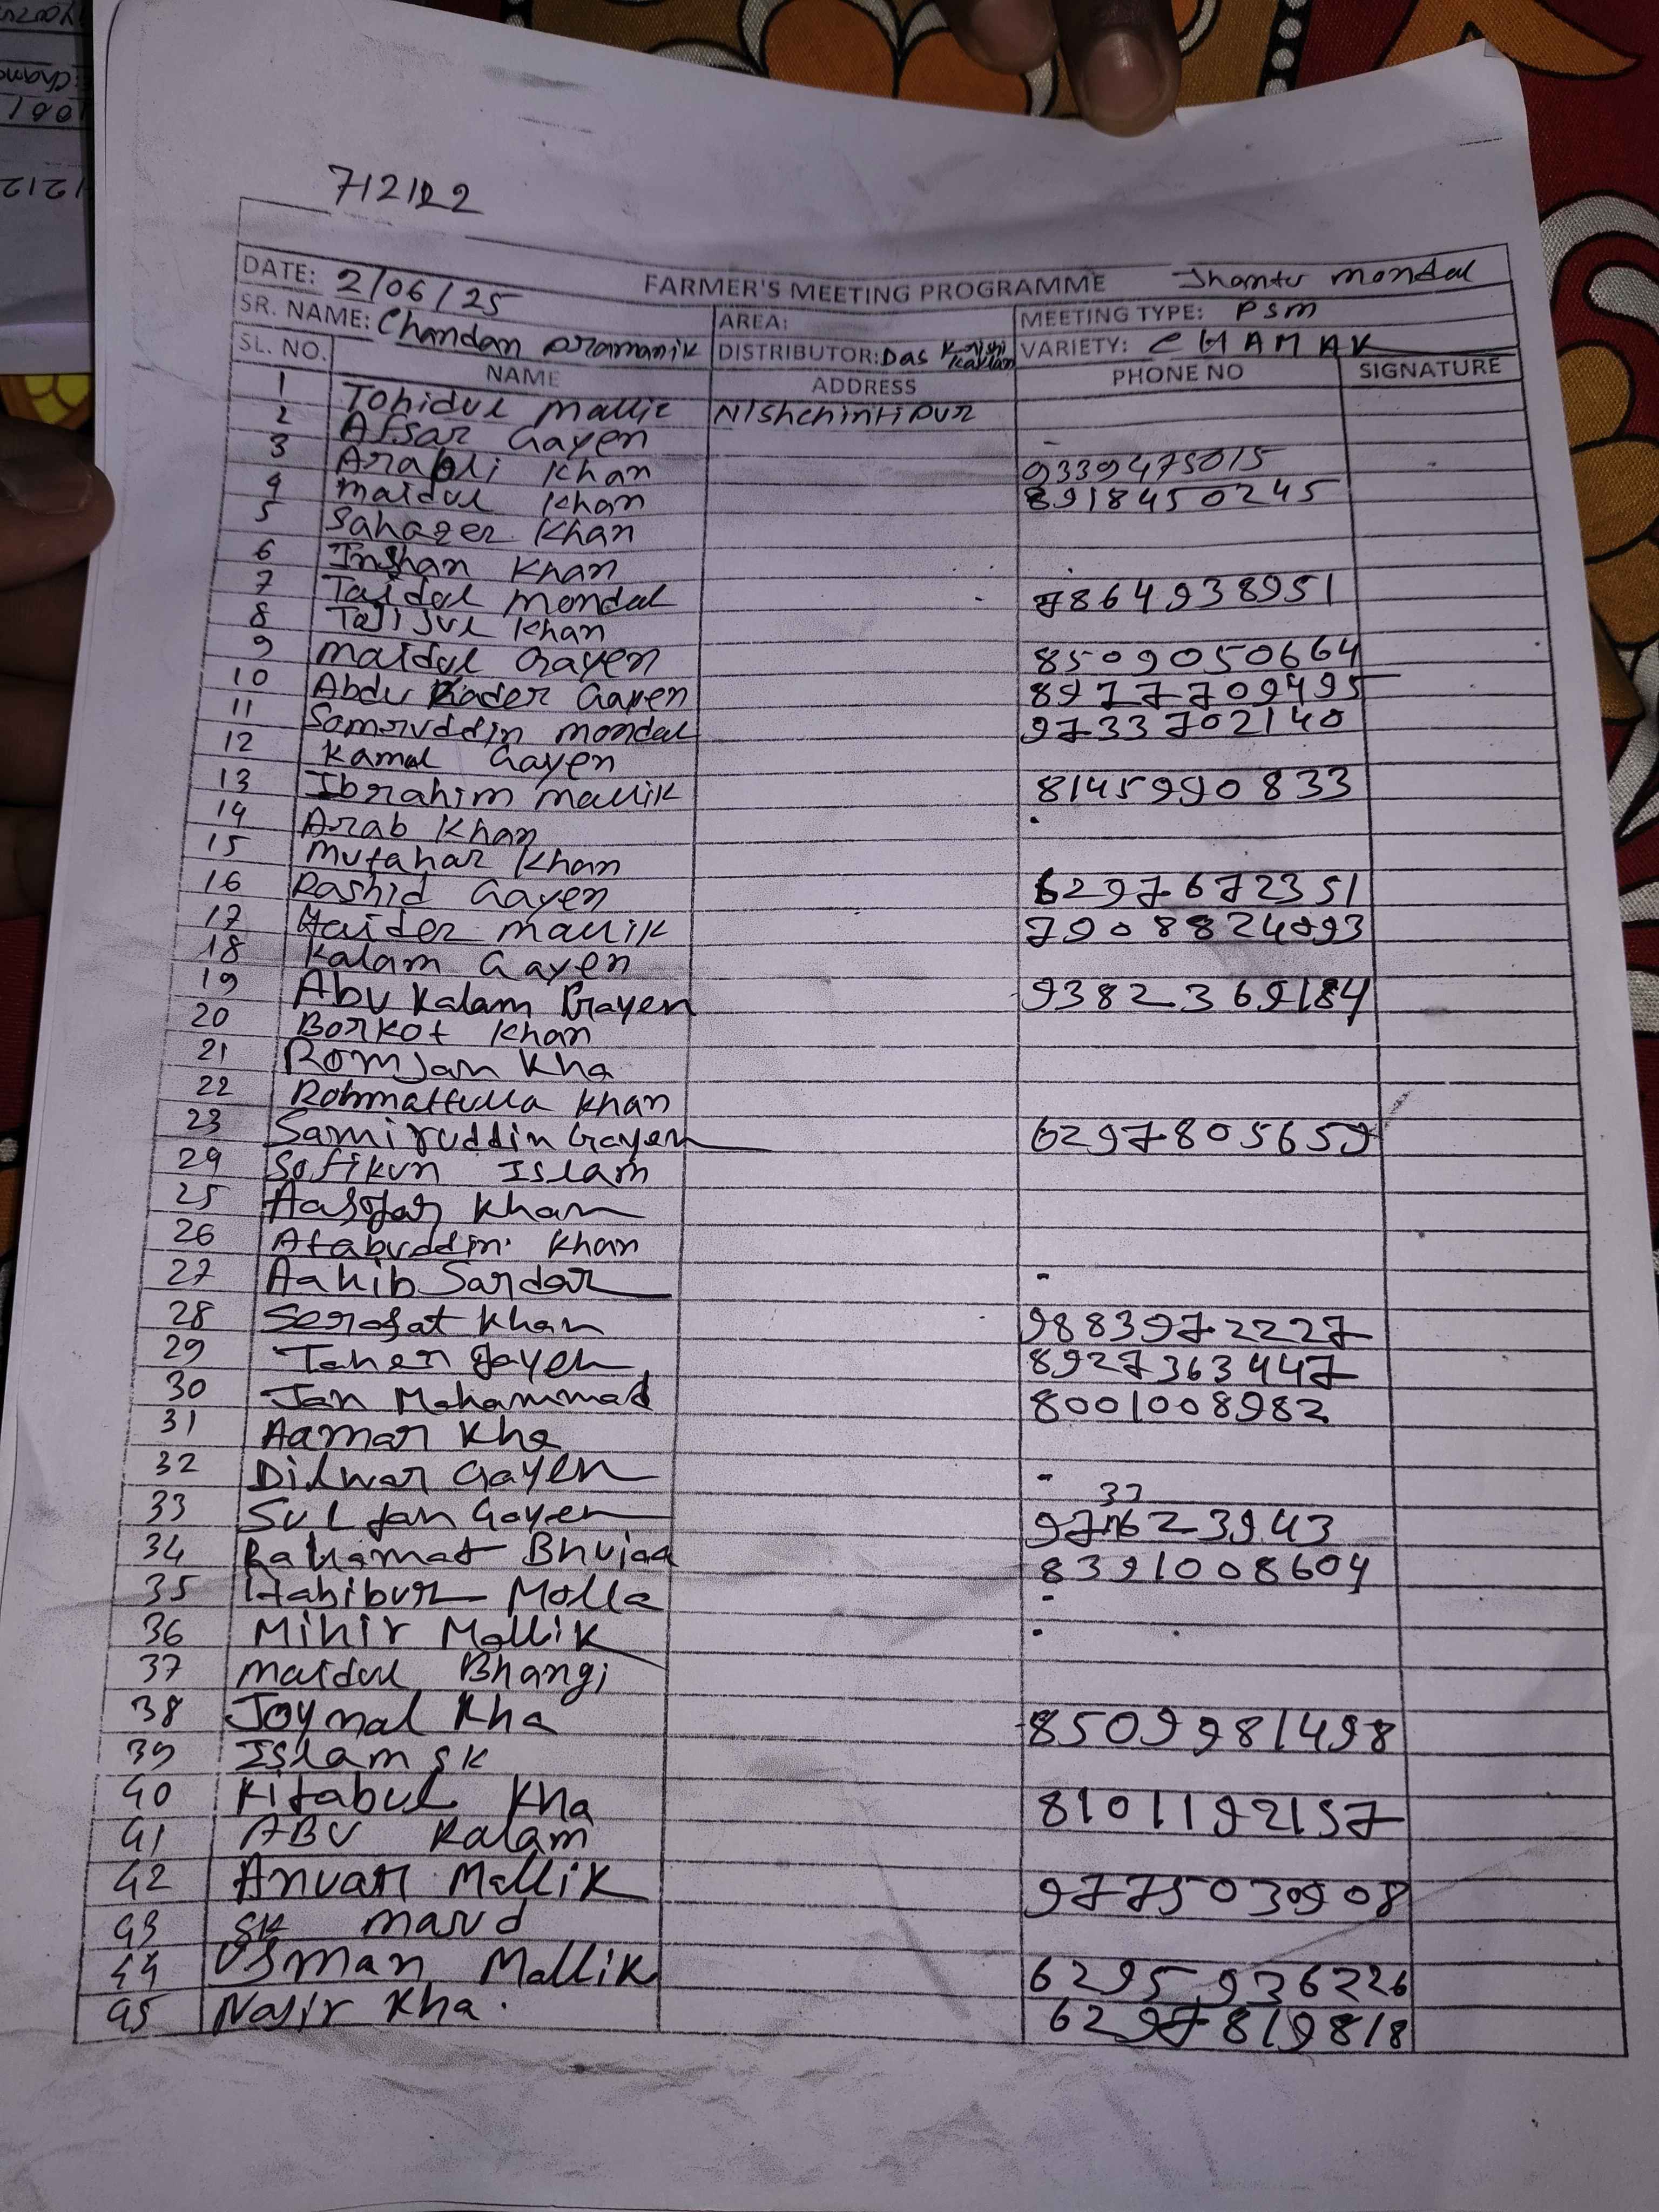 712122
FARMER'S MEETING PROGRAMME Jhantu mondal
DATE: 2/06/25
SR. NAME: Chandan pramanik AREA: MEETING TYPE: PSM
DISTRIBUTOR: Das Krishi VARIETY: CHAMAK
SL. NO. NAME ADDRESS PHONE NO SIGNATURE
1 Tohidul Mallic Nishchintipur
2 Afsar Gayen -
3 Khan 9339475015
4 Maidul Khan 8918450245
5 Sahager Khan
6 Inshan Khan
7 Taidul Mondal 7864938951
8 Khan
9 Maidul Gayen 8509050664
10 Abdu Kader Gayen 8977709495
11 Samruddin mondal 9733702140
12 Kamal Gayen
13 Ibrahim Mallik 8145990833
14 Arab Khan
15 Mutahar Khan
16 Rashid Gayen 6297672351
17 Haider mallik
18 Kalam Gayen
19 Abu Kalam Gayen 9382369184
20 Borkot Khan
21 Romjan Kha
22 Rohmattulla Khan
23 Samiruddin Gayen 6297805659
24 Sofikun Islam
25 Khan
26 Atabuddin Khan
27 Sardar -
28 Serafat Khan 9883972227
29 Taher Gayen 8927363447
30 Jan Mohammad 8001008982
31 Aamar Kha
32 Dilwar Gayen -
33 Sultan Gayen
34 Rahamat 8391008604
35 Habibur Molla -
36 Mihir Mallik
37 Maidul Bhangi
38 Joynal Kha 8509981498
39 Islam SK
40 Kitabul Kha 8101192157
41 ABU Kalam
42 Anuar Mallik 9775030908
43 SK
44 Usman Mallik 6295936226
45 Nasir Kha. 6297819818